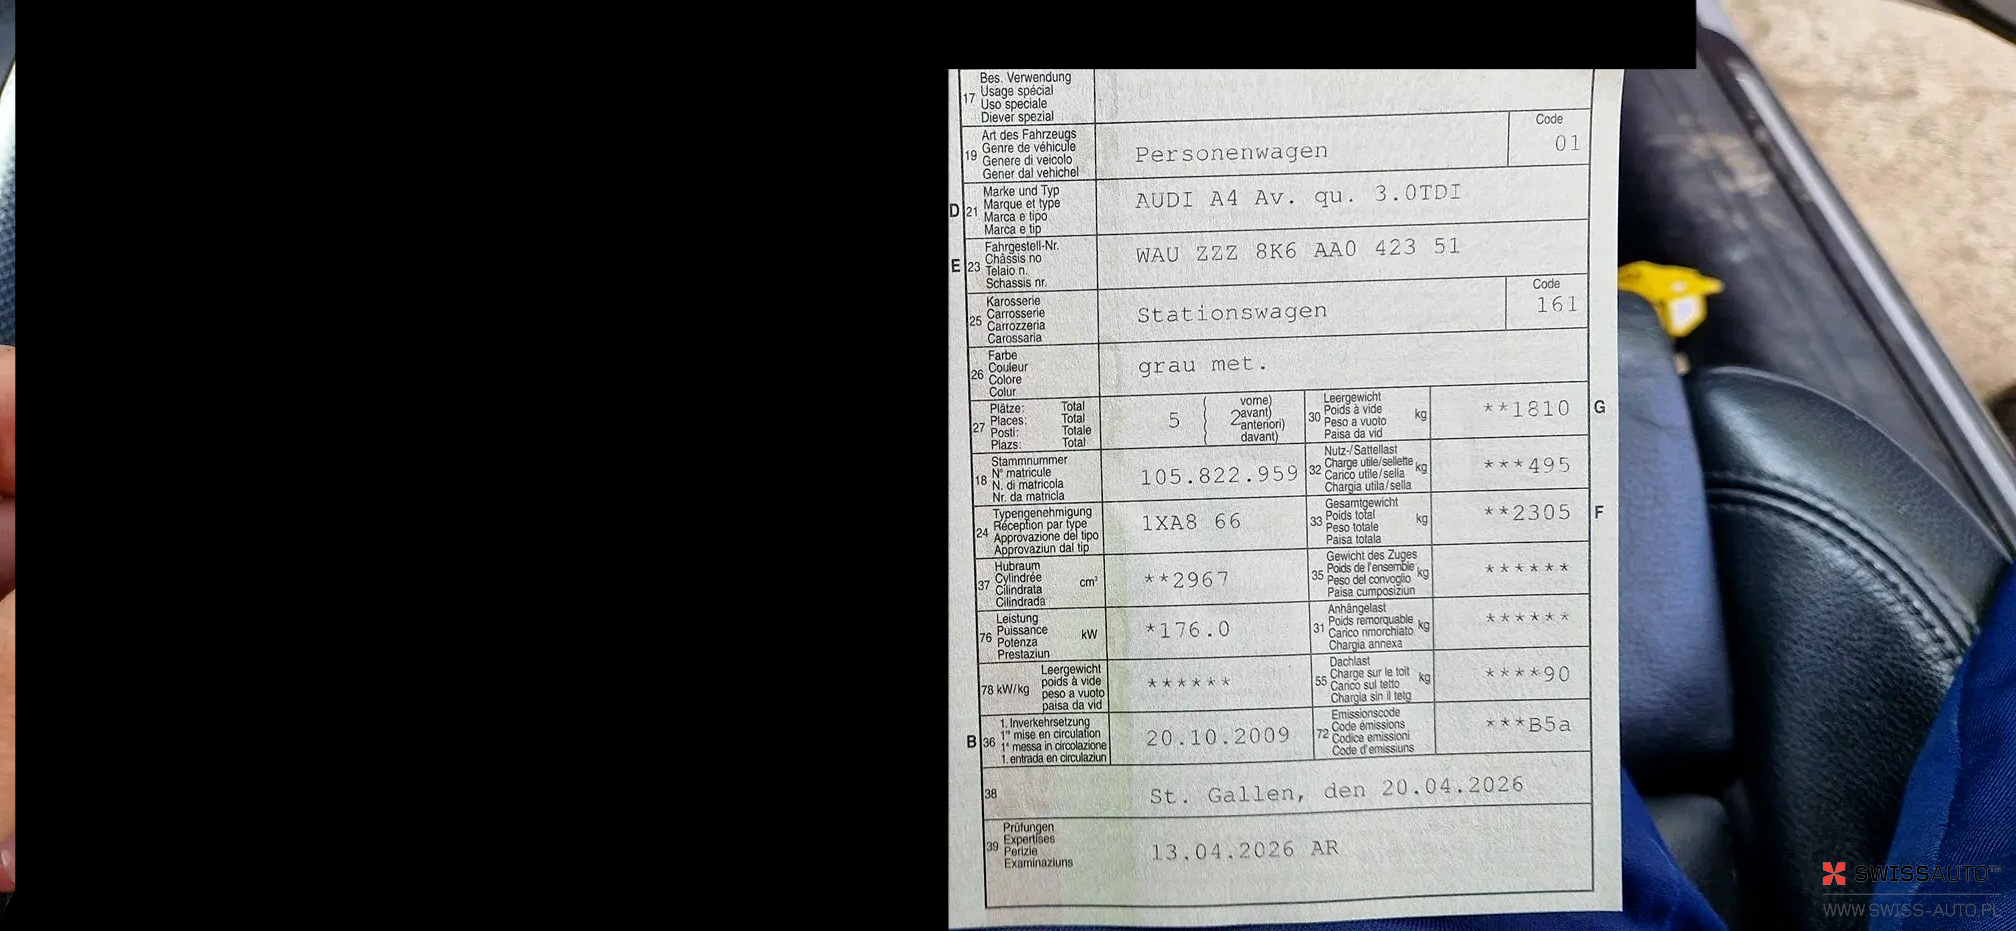 17 Bes. Verwendung
Usage spécial
Uso speciale
Diever spezial
19 Art des Fahrzeugs
Genre de véhicule
Genere di veicolo
Gener dal vehichel
Personenwagen
Code
01
D 21 Marke und Typ
Marque et type
Marca e tipo
Marca e tip
AUDI A4 Av. qu. 3.0TDI
E 23 Fahrgestell-Nr.
Châssis no
Telaio n.
Schassis nr.
WAU ZZZ 8K6 AA0 423 51
25 Karosserie
Carrosserie
Carrozzeria
Carossaria
Stationswagen
Code
161
26 Farbe
Couleur
Colore
Colur
grau met.
27 Plätze: Total
Places: Total
Posti: Totale
Plazs: Total
5 ( vorne)
2 avant)
anteriori)
davant)
30 Leergewicht
Poids à vide
Peso a vuoto
Paisa da vid
kg
**1810 G
18 Stammnummer
N° matricule
N. di matricola
Nr. da matricla
105.822.959
32 Nutz-/Sattellast
Charge utile/sellette
Carico utile/sella
Chargia utila/sella
kg
***495
24 Typengenehmigung
Réception par type
Approvazione del tipo
Approvaziun dal tip
1XA8 66
33 Gesamtgewicht
Poids total
Peso totale
Paisa totala
kg
**2305 F
37 Hubraum
Cylindrée
Cilindrata
Cilindrada
cm³
**2967
35 Gewicht des Zuges
Poids de l'ensemble
Peso del convoglio
Paisa cumposiziun
kg
******
76 Leistung
Puissance
Potenza
Prestaziun
kW
*176.0
31 Anhängelast
Poids remorquable
Carico rimorchiato
Chargia annexa
kg
******
78 kW/kg Leergewicht
poids à vide
peso a vuoto
paisa da vid
******
55 Dachlast
Charge sur le toit
Carico sul tetto
Chargia sin il tetg
kg
****90
B 36 1. Inverkehrsetzung
1re mise en circulation
1a messa in circolazione
1. entrada en circulaziun
20.10.2009
72 Emissionscode
Code émissions
Codice emissioni
Code d'emissiuns
***B5a
38 St. Gallen, den 20.04.2026
39 Prüfungen
Expertises
Perizie
Examinaziuns
13.04.2026 AR
SWISSAUTO™
WWW.SWISS-AUTO.PL